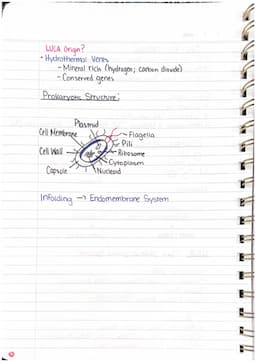 LUCA Origin?
• Hydrothermal Vents
- Mineral rich (hydrogen; carbon dioxide)
- Conserved genes
Prokaryotic Structure:
Plasmid
Cell Membrane
Flagella
Pili
Cell Wall
Ribosome
Cytoplasm
Capsule
Nucleoid
Infolding → Endomembrane System